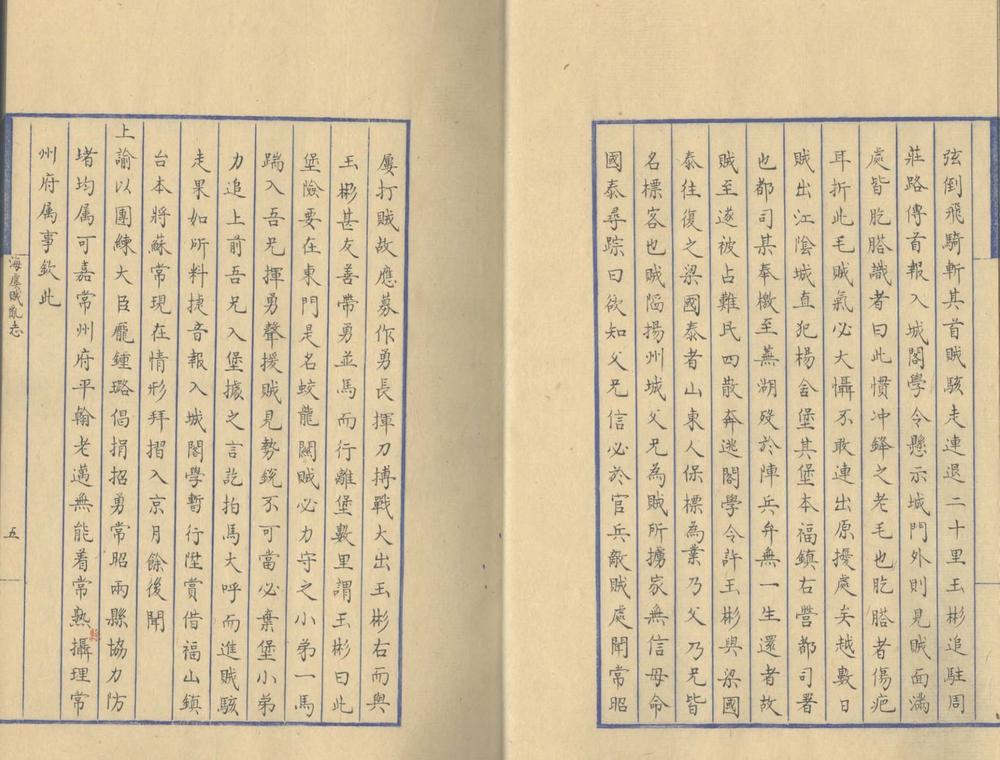 弦倒飛騎斬其首賊駭走連退二十里玉彬追駐周
莊路傳首報入城閣學令懸示城門外則見賊面滿
處皆肐膪識者曰此慣冲鋒之老毛也肐膪者傷疤
耳折此毛賊氣必大懾不敢連出原擾處矣越數日
賊出江陰城直犯楊舍堡其堡本福鎮右營都司署
也都司某奉檄至蕪湖歿於陣兵弁無一生還者故
賊至遂被占難民四散奔逃閣學令許玉彬與梁國
泰往復之梁國泰者山東人保標為業乃父乃兄皆
名標客也賊陷揚州城父兄為賊所擄家無信母命
國泰尋踪曰欲知父兄信必於官兵敵賊處聞常昭
屢打賊故應募作勇長揮刀搏戰大出玉彬右而與
玉彬甚友善帶勇並馬而行離堡數里謂玉彬曰此
堡險要在東門是名蛟龍闕賊必力守之小弟一馬
踹入吾兄揮勇聲援賊見勢銳不可當必棄堡小弟
力追上前吾兄入堡據之言訖拍馬大呼而進賊駭
走果如所料捷音報入城閣學暫行陞賞借福山鎮
台本將蘇常現在情形拜摺入京月餘後聞
上諭以團練大臣龎鍾璐倡捐招勇常昭兩縣協力防
堵均属可嘉常州府平翰老邁無能着常熟攝理常
縣
州府属事欽此
海虞賊亂志
五